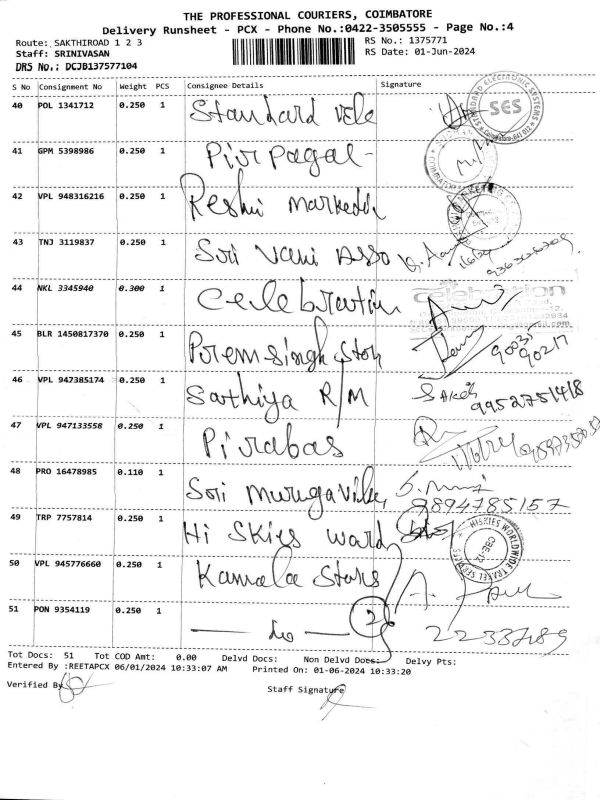 THE PROFESSIONAL COURIERS, COIMBATORE
Delivery Runsheet - PCX - Phone No.:0422-3505555 - Page No.:4
Route: SAKTHIROAD 1 2 3
RS No.: 1375771
Staff: SRINIVASAN
RS Date: 01-Jun-2024
DRS No.: DCJB137577104
S No Consignment No Weight PCS Consignee Details Signature
40 POL 1341712 0.250 1 Standard
SES
41 GPM 5398986 0.250 1
42 VPL 948316216 0.250 1 Reshu
43 TNJ 3119837 0.250 1 Sri Vani Asso
44 NKL 3345940 0.300 1 Celebration
celebration
45 BLR 1450817370 0.250 1 Premsingh
90217
46 VPL 947385174 0.250 1 Sathiya R/M
9952751418
47 VPL 947133558 0.250 1 Pirabas
48 PRO 16478985 0.110 1 Sri
9894785157
49 TRP 7757814 0.250 1 Hi Skies
HI SKIES WORLDWIDE TRAVEL SERVICES CBE-12
50 VPL 945776660 0.250 1 Kamala Stores
51 PON 9354119 0.250 1 — do — 2
2233789
Tot Docs: 51 Tot COD Amt: 0.00 Delvd Docs: Non Delvd Docs: Delvy Pts:
Entered By :REETAPCX 06/01/2024 10:33:07 AM Printed On: 01-06-2024 10:33:20
Verified By
Staff Signature